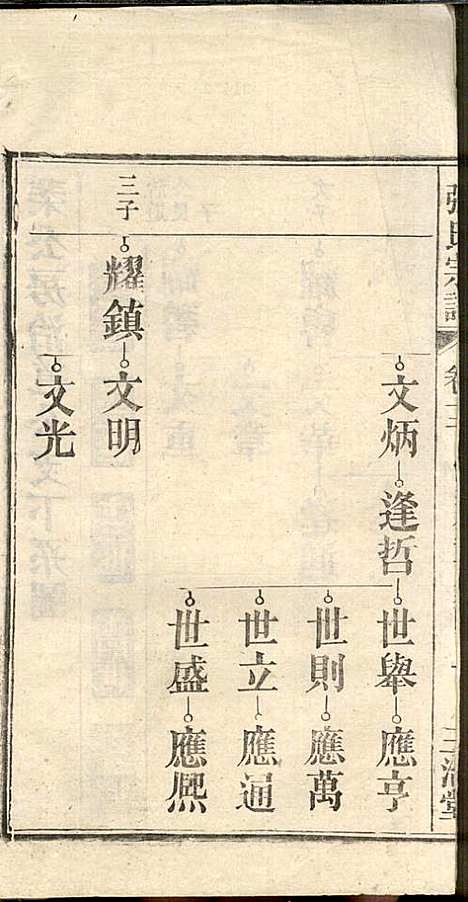 張氏宗譜
卷
文炳
逢哲
世舉
應亨
世則
應萬
世立
應通
世盛
應熙
三子
耀鎮
文明
文光